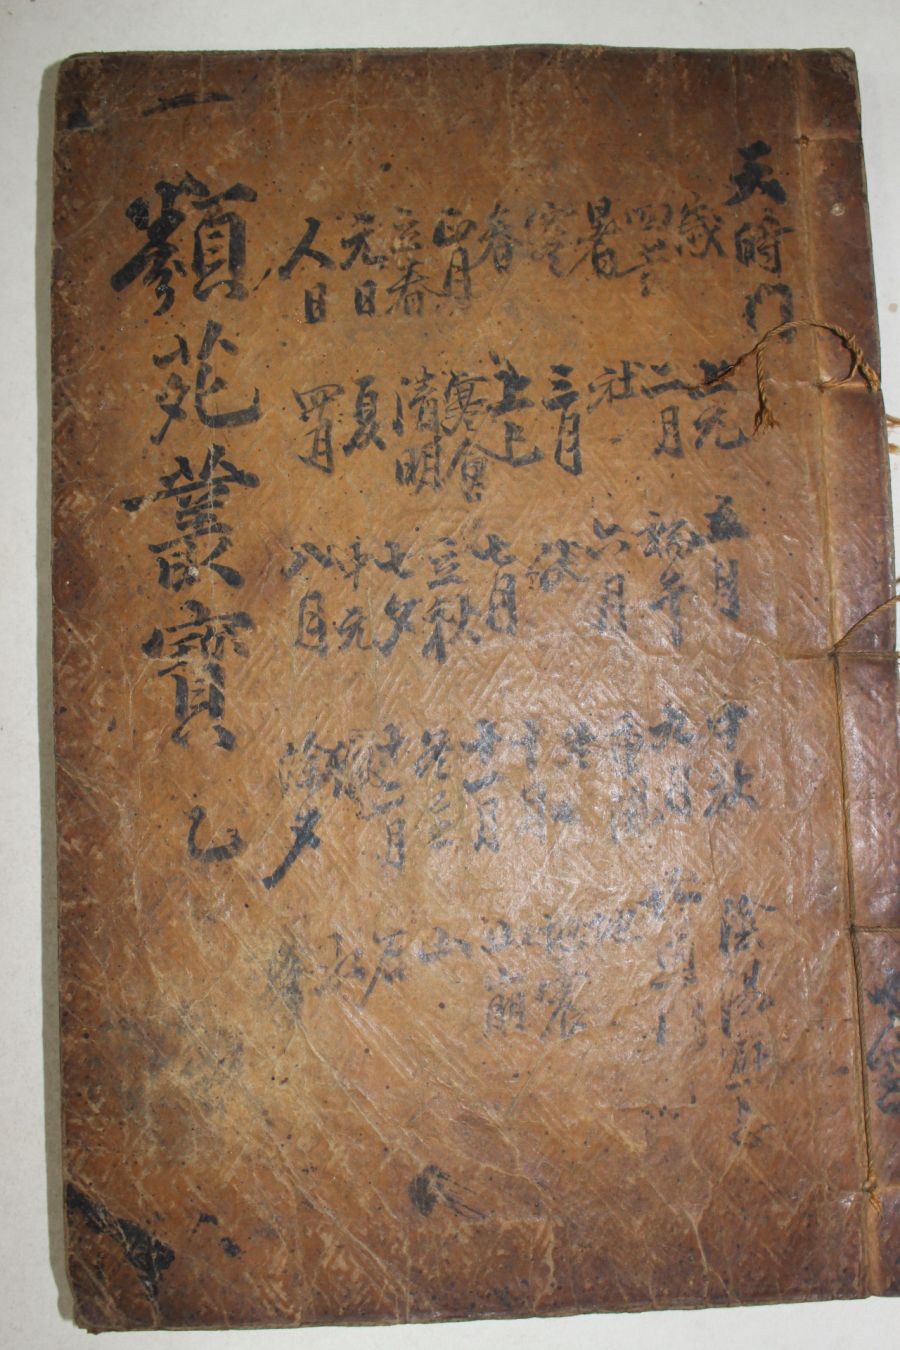 天時門
歲
四時
暑
寒
春
正月
立春
元日
人日
上元
二月
社
三月
上巳
寒食
清明
夏
四月
五月
端午
六月
伏
七月
立秋
七夕
中元
八月
中秋
九月
重陽
冬
十月
十一月
冬至
十二月
臘
除夕
陰陽
地道門
地
山
石
一
類苑叢寶 乙